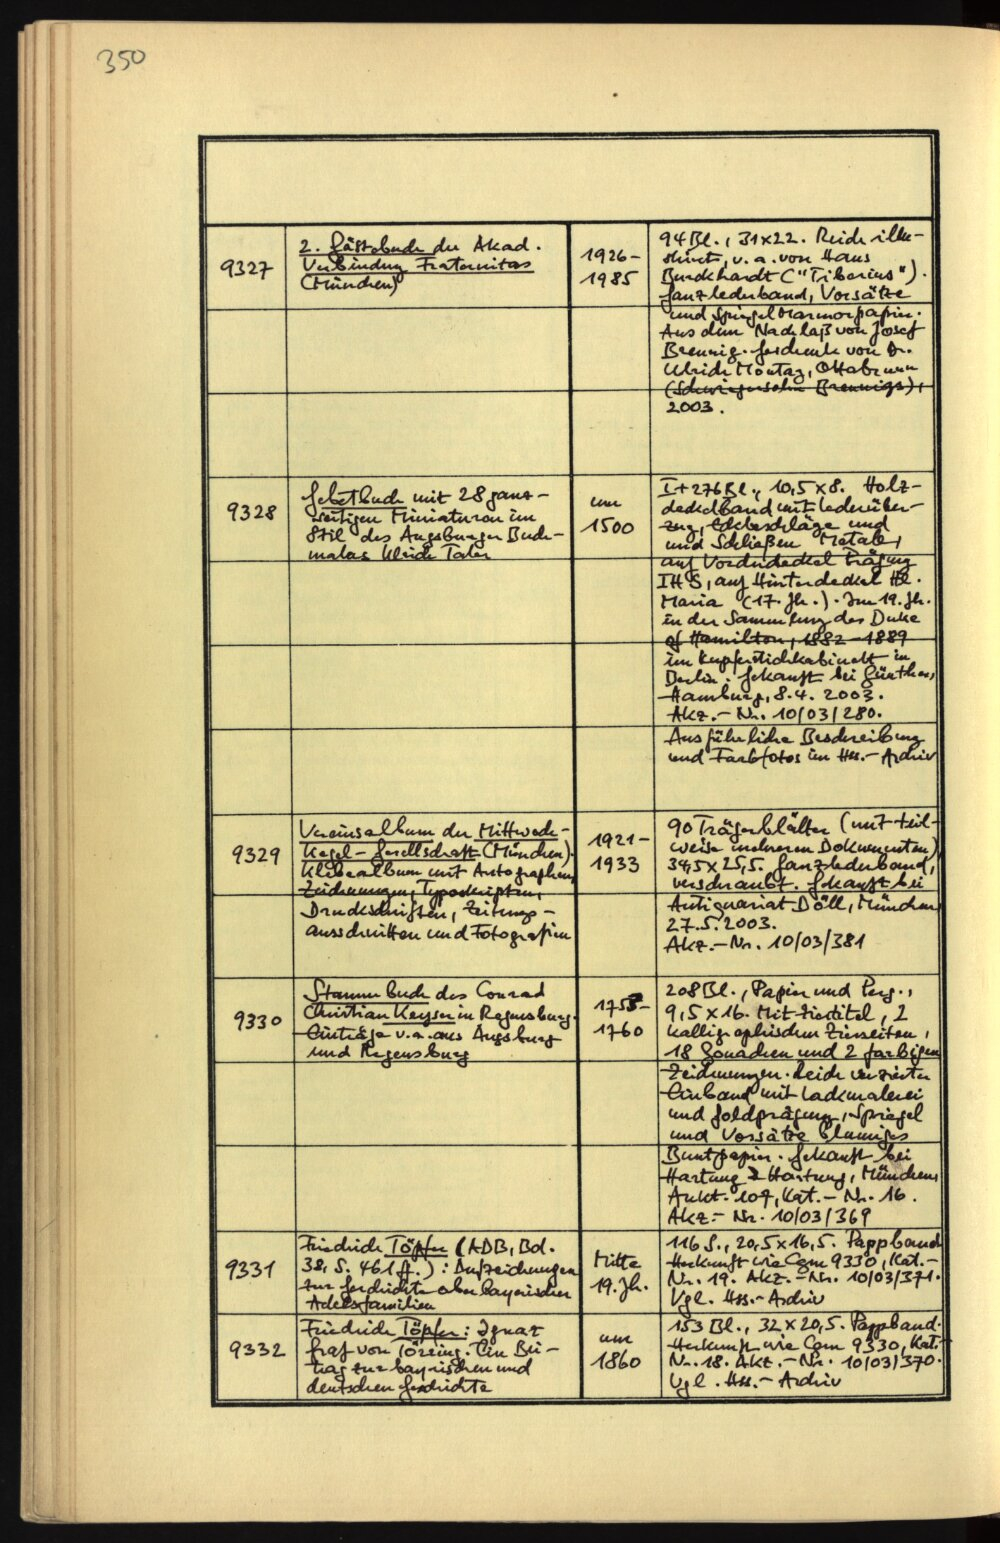 350
9327
2. Gästebuch der Akad.
Verbindung Fraternitas
(München)
1926-
1985
94 Bl., 31x22. Reich illu-
striert, u. a. von Hans
Burckhardt ("Tiberius").
Ganzlederband, Vorsätze
und Spiegel Marmorpapier.
Aus dem Nachlaß von Josef
Brennig. Geschenk von Dr.
Ulrich Montag, Ottobrunn
(Schwiegersohn Brennigs),
2003.
9328
Gebetbuch mit 28 ganz-
seitigen Miniaturen im
Stil des Augsburger Buch-
malers Ulrich Taler
um
1500
I+276 Bl., 10,5x8. Holz-
deckelband mit Lederüber-
zug, Eckbeschläge und
und Schließen Metall,
auf Vorderdeckel Prägung
IHS, auf Hinterdeckel Hl.
Maria (17. Jh.). Im 19. Jh.
in der Sammlung des Duke
of Hamilton, 1882-1889
im Kupferstichkabinett in
Berlin. Gekauft bei Günther,
Hamburg, 8.4.2003.
Akz.-Nr. 10/03/280.
Ausführliche Beschreibung
und Farbfotos im Hss.-Archiv
9329
Vereinsalbum der Mittwoch-
Kegel-Gesellschaft (München).
Klebealbum mit Autographen,
Zeichnungen, Typoskripten,
Druckschriften, Zeitungs-
ausschnitten und Fotografien
1921-
1933
90 Trägerblätter (mit teil-
weise mehreren Dokumenten),
34,5x25,5. Ganzlederband,
verschraubt. Gekauft bei
Antiquariat Döll, München,
27.5.2003.
Akz.-Nr. 10/03/381
9330
Stammbuch des Conrad
Christian Keyser in Regensburg.
Einträge u. a. aus Augsburg
und Regensburg
1755-
1760
208 Bl., Papier und Perg.,
9,5x16. Mit Ziertitel, 2
kalligraphischen Zierseiten,
18 Gouachen und 2 farbigen
Zeichnungen. Reich verzierter
Einband mit Lackmalerei
und Goldprägung, Spiegel
und Vorsätze blumiges
Buntpapier. Gekauft bei
Hartung & Hartung, München,
Aukt. 107, Kat.-Nr. 16.
Akz.-Nr. 10/03/369
9331
Friedrich Töpfer (ADB, Bd.
38, S. 461 ff.): Aufzeichnungen
zur Geschichte oberbayerischer
Adelsfamilien
Mitte
19. Jh.
116 S., 20,5x16,5. Pappband
Herkunft wie Cgm 9330, Kat.-
Nr. 19. Akz.-Nr. 10/03/371.
Vgl. Hss.-Archiv
9332
Friedrich Töpfer: Ignaz
Graf von Törring. Ein Bei-
trag zur bayrischen und
deutschen Geschichte
um
1860
153 Bl., 32x20,5. Pappband.
Herkunft wie Cgm 9330, Kat.-
Nr. 18. Akz.-Nr. 10/03/370.
Vgl. Hss.-Archiv